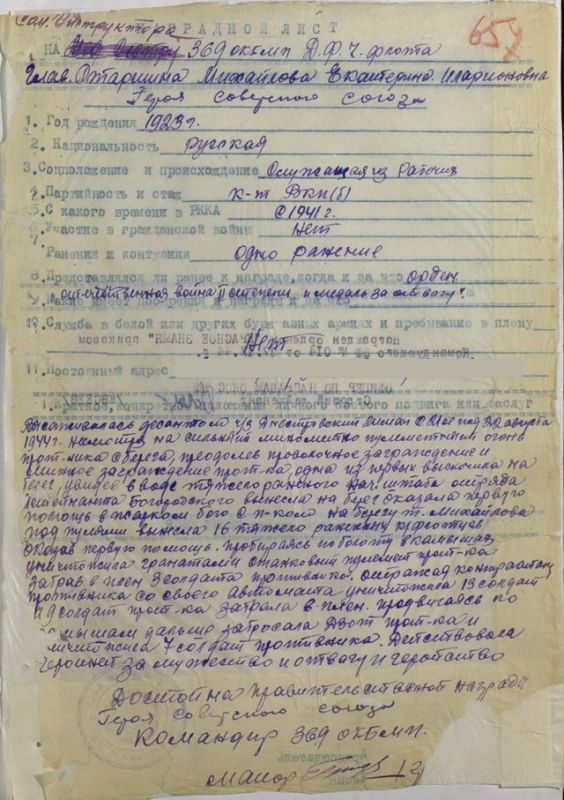 сан. Инструктора
НАГРАДНОЙ ЛИСТ
657
НА 369 ОКБМП Д.Ф.Ч. флота
Глав. Старшина Михайлова Екатерина Иларионовна
Героя Советского Союза
1. Год рождения 1923 г.
2. Национальность русская
3. Соцположение и происхождение Служащая из Рабочих
4. Партийность и стаж к-т ВКП(б)
5. С какого времени в РККА с 1941 г.
6. Участие в гражданской войне Нет
7. Ранения и контузии одно ранение
8. Представлялся ли ранее к награде, когда и за что орден
"отечественная война II степени и медаль за отвагу".
10. Служба в белой или других буржуазных армиях и пребывание в плену
Нет
награжден орденом "КРАСНОЕ ЗНАМЯ" приказом
Командующего № 014 от
11. Постоянный адрес
ОФИЦЕР ПО НАГРАДАМ
1. Краткое, конкретное изложение личного боевого подвига или заслуг
Высаживалась десантом ч/з Днестровский лиман с 21 на 22 августа
1944 г. Несмотря на сильный минометно пулеметный огонь
прот-ника с берега, преодолев проволочное заграждение и
минное заграждение прот-ка, одна из первых выскочила на
берег, увидев в воде тяжело раненого нач. штаба отряда
лейтенанта Богородского вынесла на берег оказала первую
помощь в жарком бою с п-ком на берегу т. Михайлова
под пулями вынесла 16 тяжело раненых к/фотцев
оказав первую помощь. пробираясь по болоту в камышах
уничтожила гранатами станковый пулемет прот-ка
забрав в плен 3 солдата противника. отражая контратаку
противника со своего автомата уничтожила 13 солдат
и 9 солдат прот-ка забрала в плен. продвигаясь по
камышам дальше забросала дзот прот-ка и
уничтожила 7 солдат противника. Действовала
героиней за мужество и отвагу и геройство
Достойна правительственной награды
Героя Советского союза
Командир 369 ОКБМП.
майор